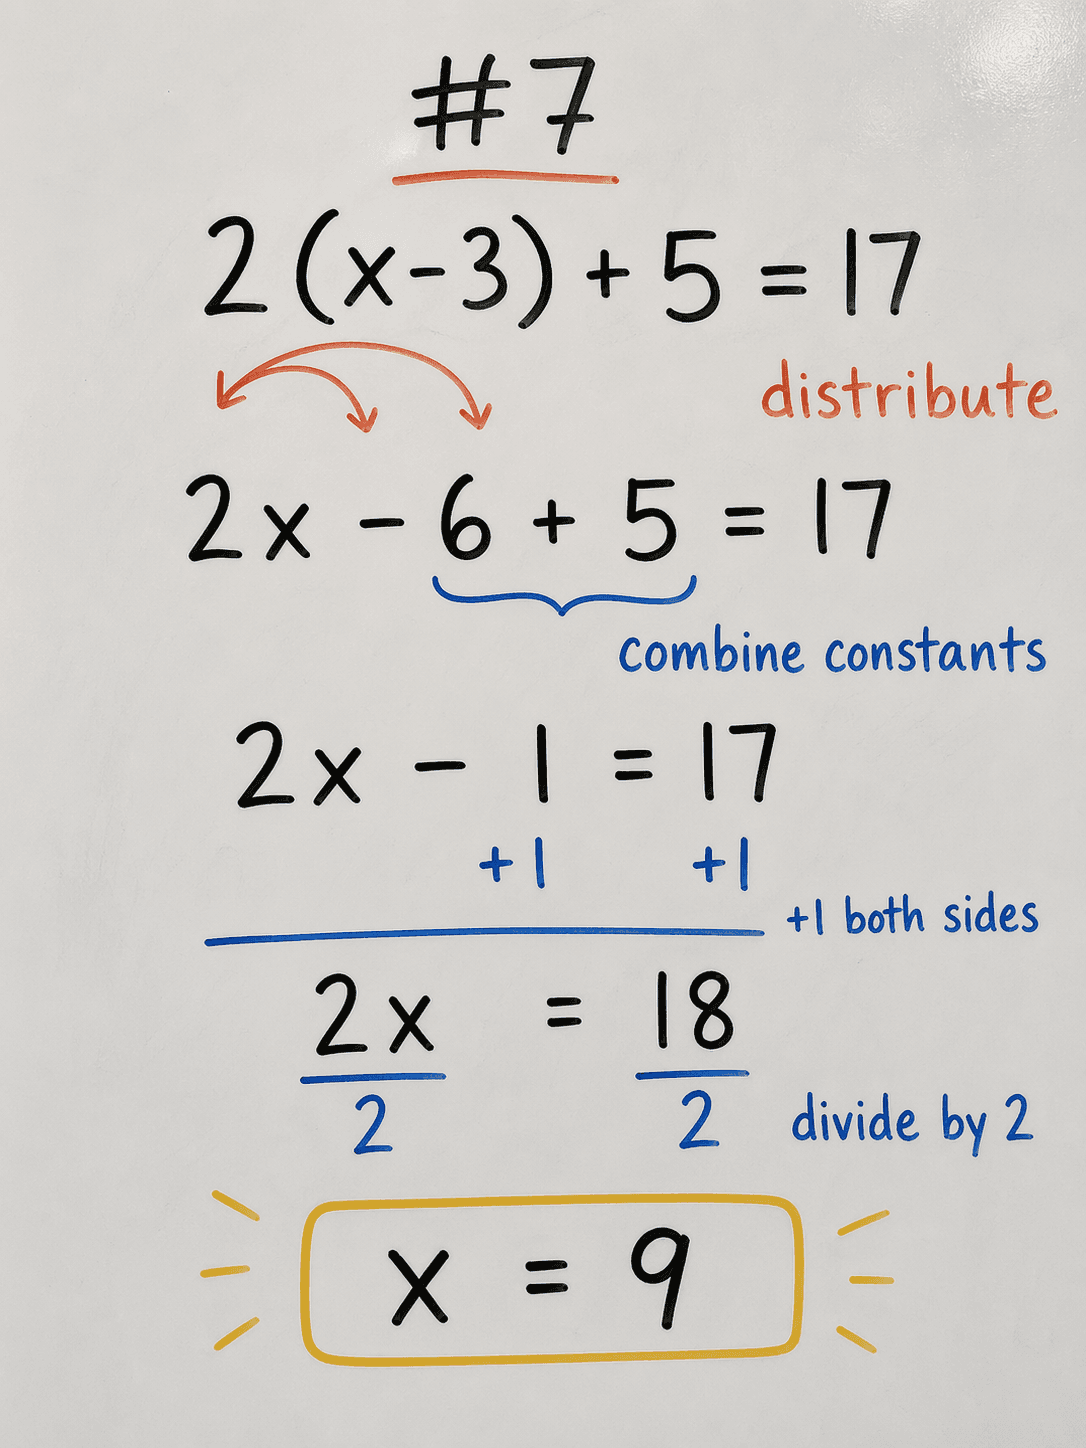 #7
2(x-3)+5=17
distribute
2x - 6 + 5 = 17
combine constants
2x - 1 = 17
+1 +1
+1 both sides
2x = 18
2 2 divide by 2
x = 9